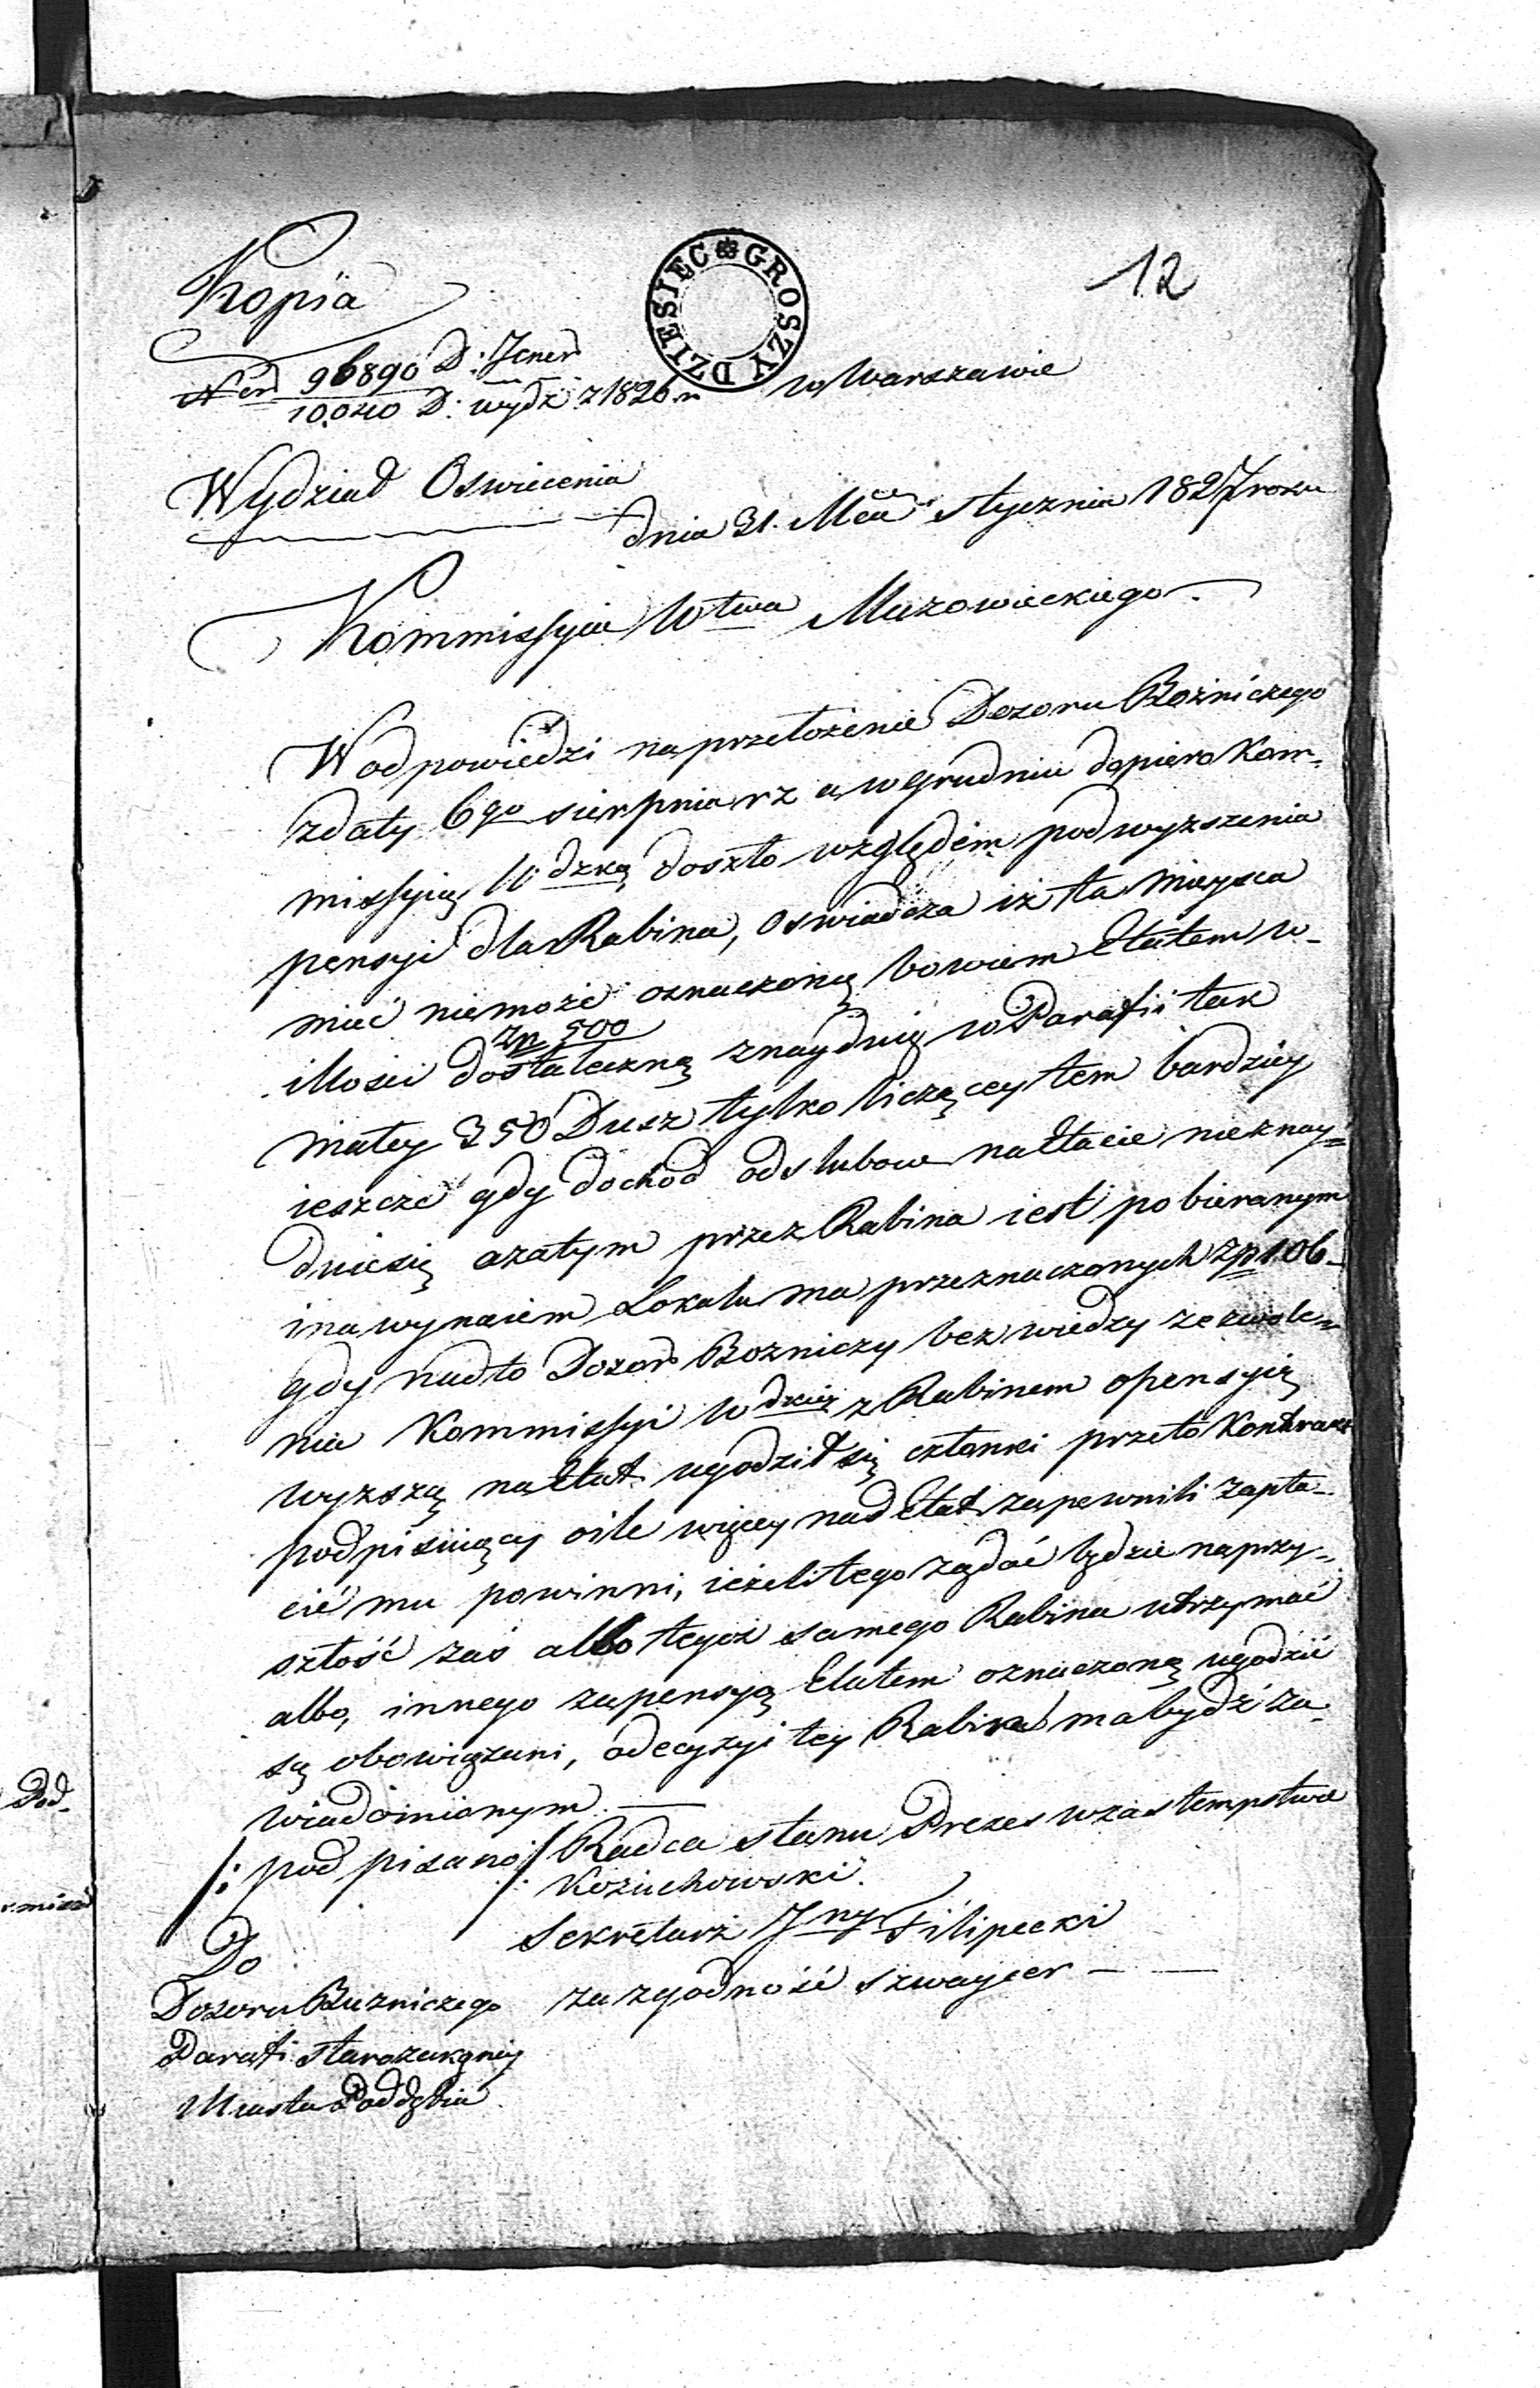 12
Kopia
DZIESIĘC GROSZY
Ner 96890 D: Jener
10.040 D: wydz z 1826 r
w Warszawie
Wydział Oswiecenia
dnia 31. Mca stycznia 1827 roku
Kommissyia Wtwa Mazowieckiego.
W odpowiedzi na przełożenie Dozoru Bożniczego
z daty 6go sierpnia r z a w Grudniu dopiero Kom-
missyią Wdzką doszło względem podwyższenia
pensyi dla Rabina, oswiadcza iż ta mieysca
mieć niemoże oznaczoną bowiem Etatem w
illości zp 500 dostateczną znayduię w Parafii tak
małey 350 Dusz tylko liczącey tem bardziey
ieszcze gdy dochod od slubow na Etacie nieznay=
duie się azatym przez Rabina iest pobieranym
i na wynaiem Lokalu ma przeznaczonych zp 106-
gdy nadto Dozor Bozniczy bez wiedzy zezwole=
nia Kommissyi Wdzkiey z Rabinem o pensyią
wyższą na Etat ugodził się członki przeto Kontrakt
podpisuiący oile więcey nad Etat zapewnili zapła-
cić mu powinni, ieżeli tego żądać będzie na przy=
szłość zaś albo tegoż samego Rabina utrzymać
albo, innego za pensyą Etatem oznaczoną ugodzić
są obowiązani, o decyzyi tey Rabin ma bydź za-
wiadomionym. —
/: podpisano :/ Radca stanu Prezes w zastempstwie
Kożuchowski.
Sekretarz Jny Filipecki
za zgodność Szwaycer —
Do
Dozoru Buzniczego
Parafi starozakonny
Miasta Poddębia
Pod-